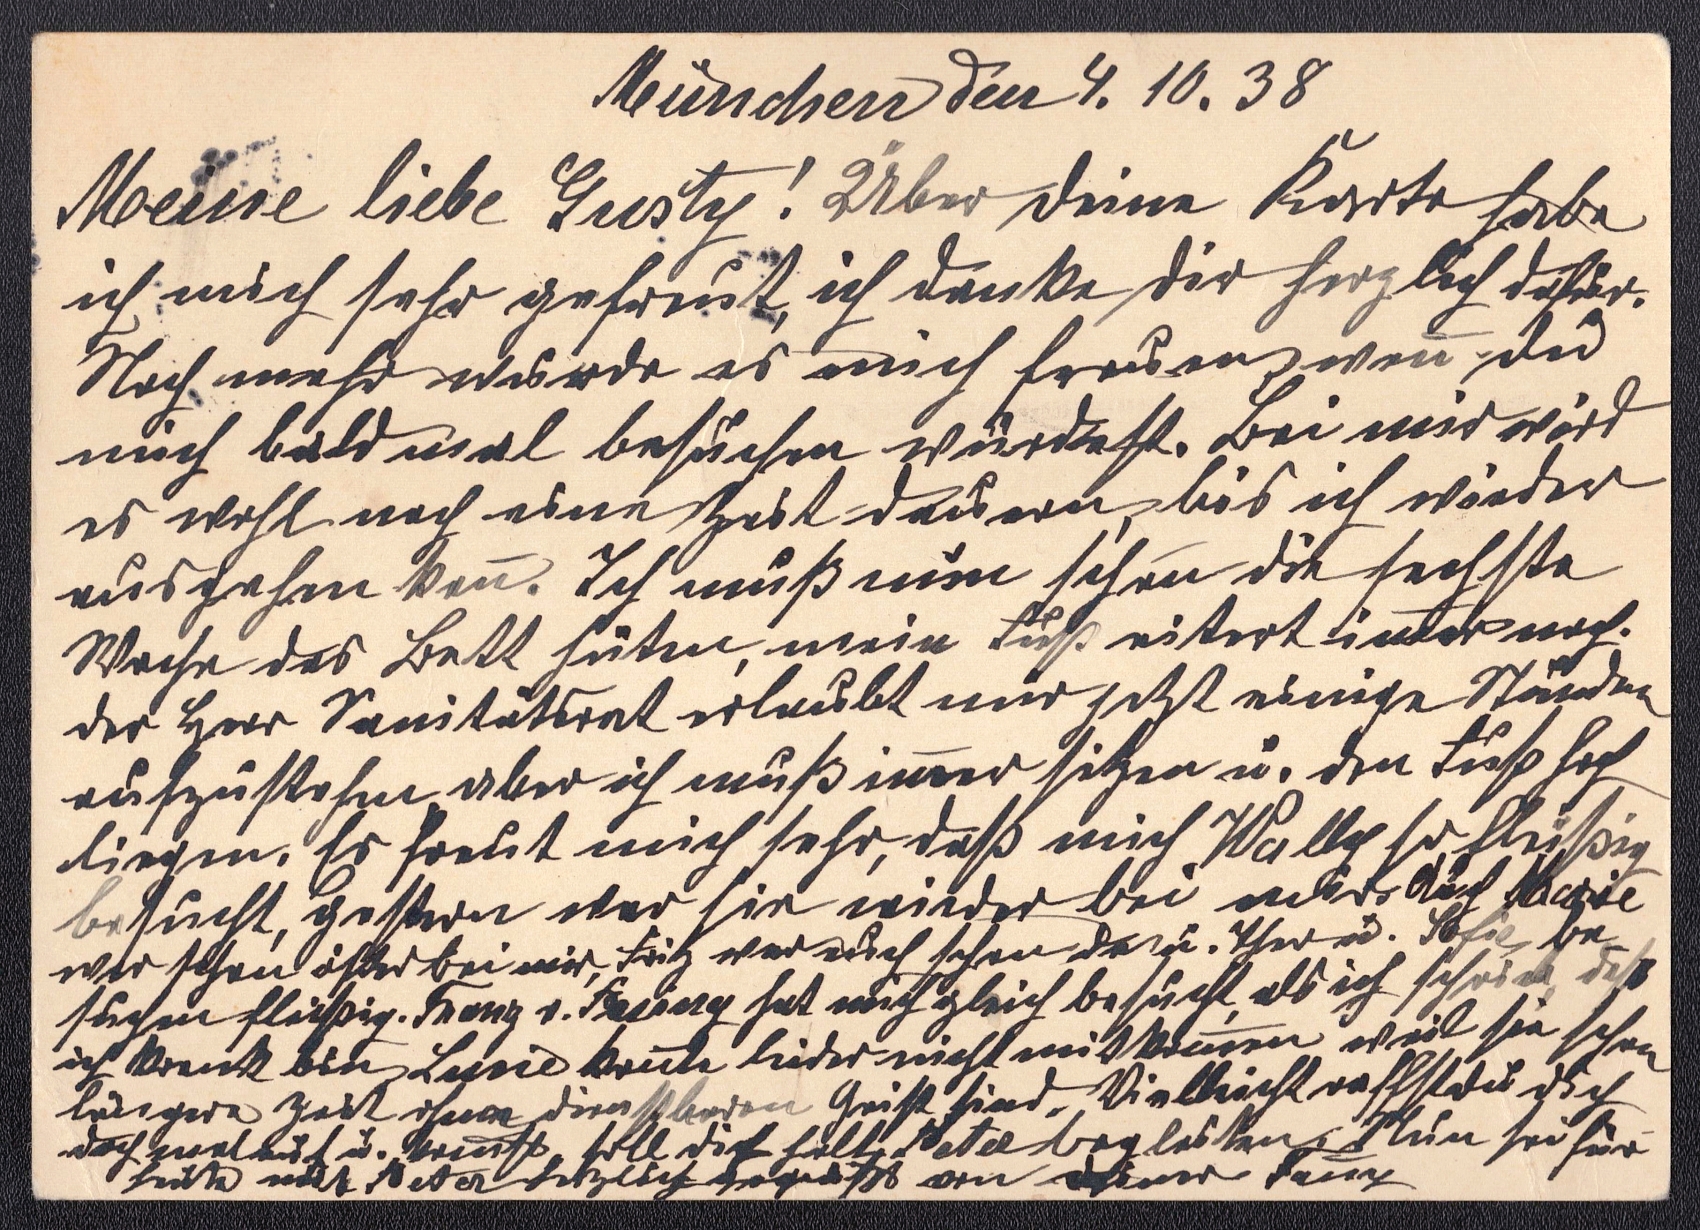 München den 4. 10. 38
Meine liebe Gusty! Über deine Karte habe
ich mich sehr gefreut, ich danke dir herzlich dafür.
Noch mehr würde es mich freuen, wen̄ du
mich bald mal besuchen würdest. Bei mir wird
es wohl noch eine Zeit dauern, bis ich wieder
ausgehen kan̄. Ich muß nun schon die sechste
Woche das Bett hüten, mein Fuß eitert im̄er noch.
der Herr Sanitätsrat erlaubt mir jetzt einige Stunden
aufzustehen, aber ich muß im̄er sitzen u. den Fuß hoch
liegen. Es freut mich sehr, daß mich Wally so fleißig
besucht, gestern war sie wieder bei mir. Auch Marie
war schon öfter bei mir, Fritz war auch schon da u. Ther u. Sofie be-
suchen fleißig. Franz v. Freising hat mich gleich besucht, als ich schrieb, daß
ich krank bin, kon̄te leider nicht mitkom̄en weil sie schon
längere Zeit ohne dienstbaren Geist sind. Vielleicht raffst du dich
doch mal auf u. kom̄st, soll dich halt Peter begleiten. Nun sei für
heute mit Peter herzlich gegrüßt von deiner Fan̄y